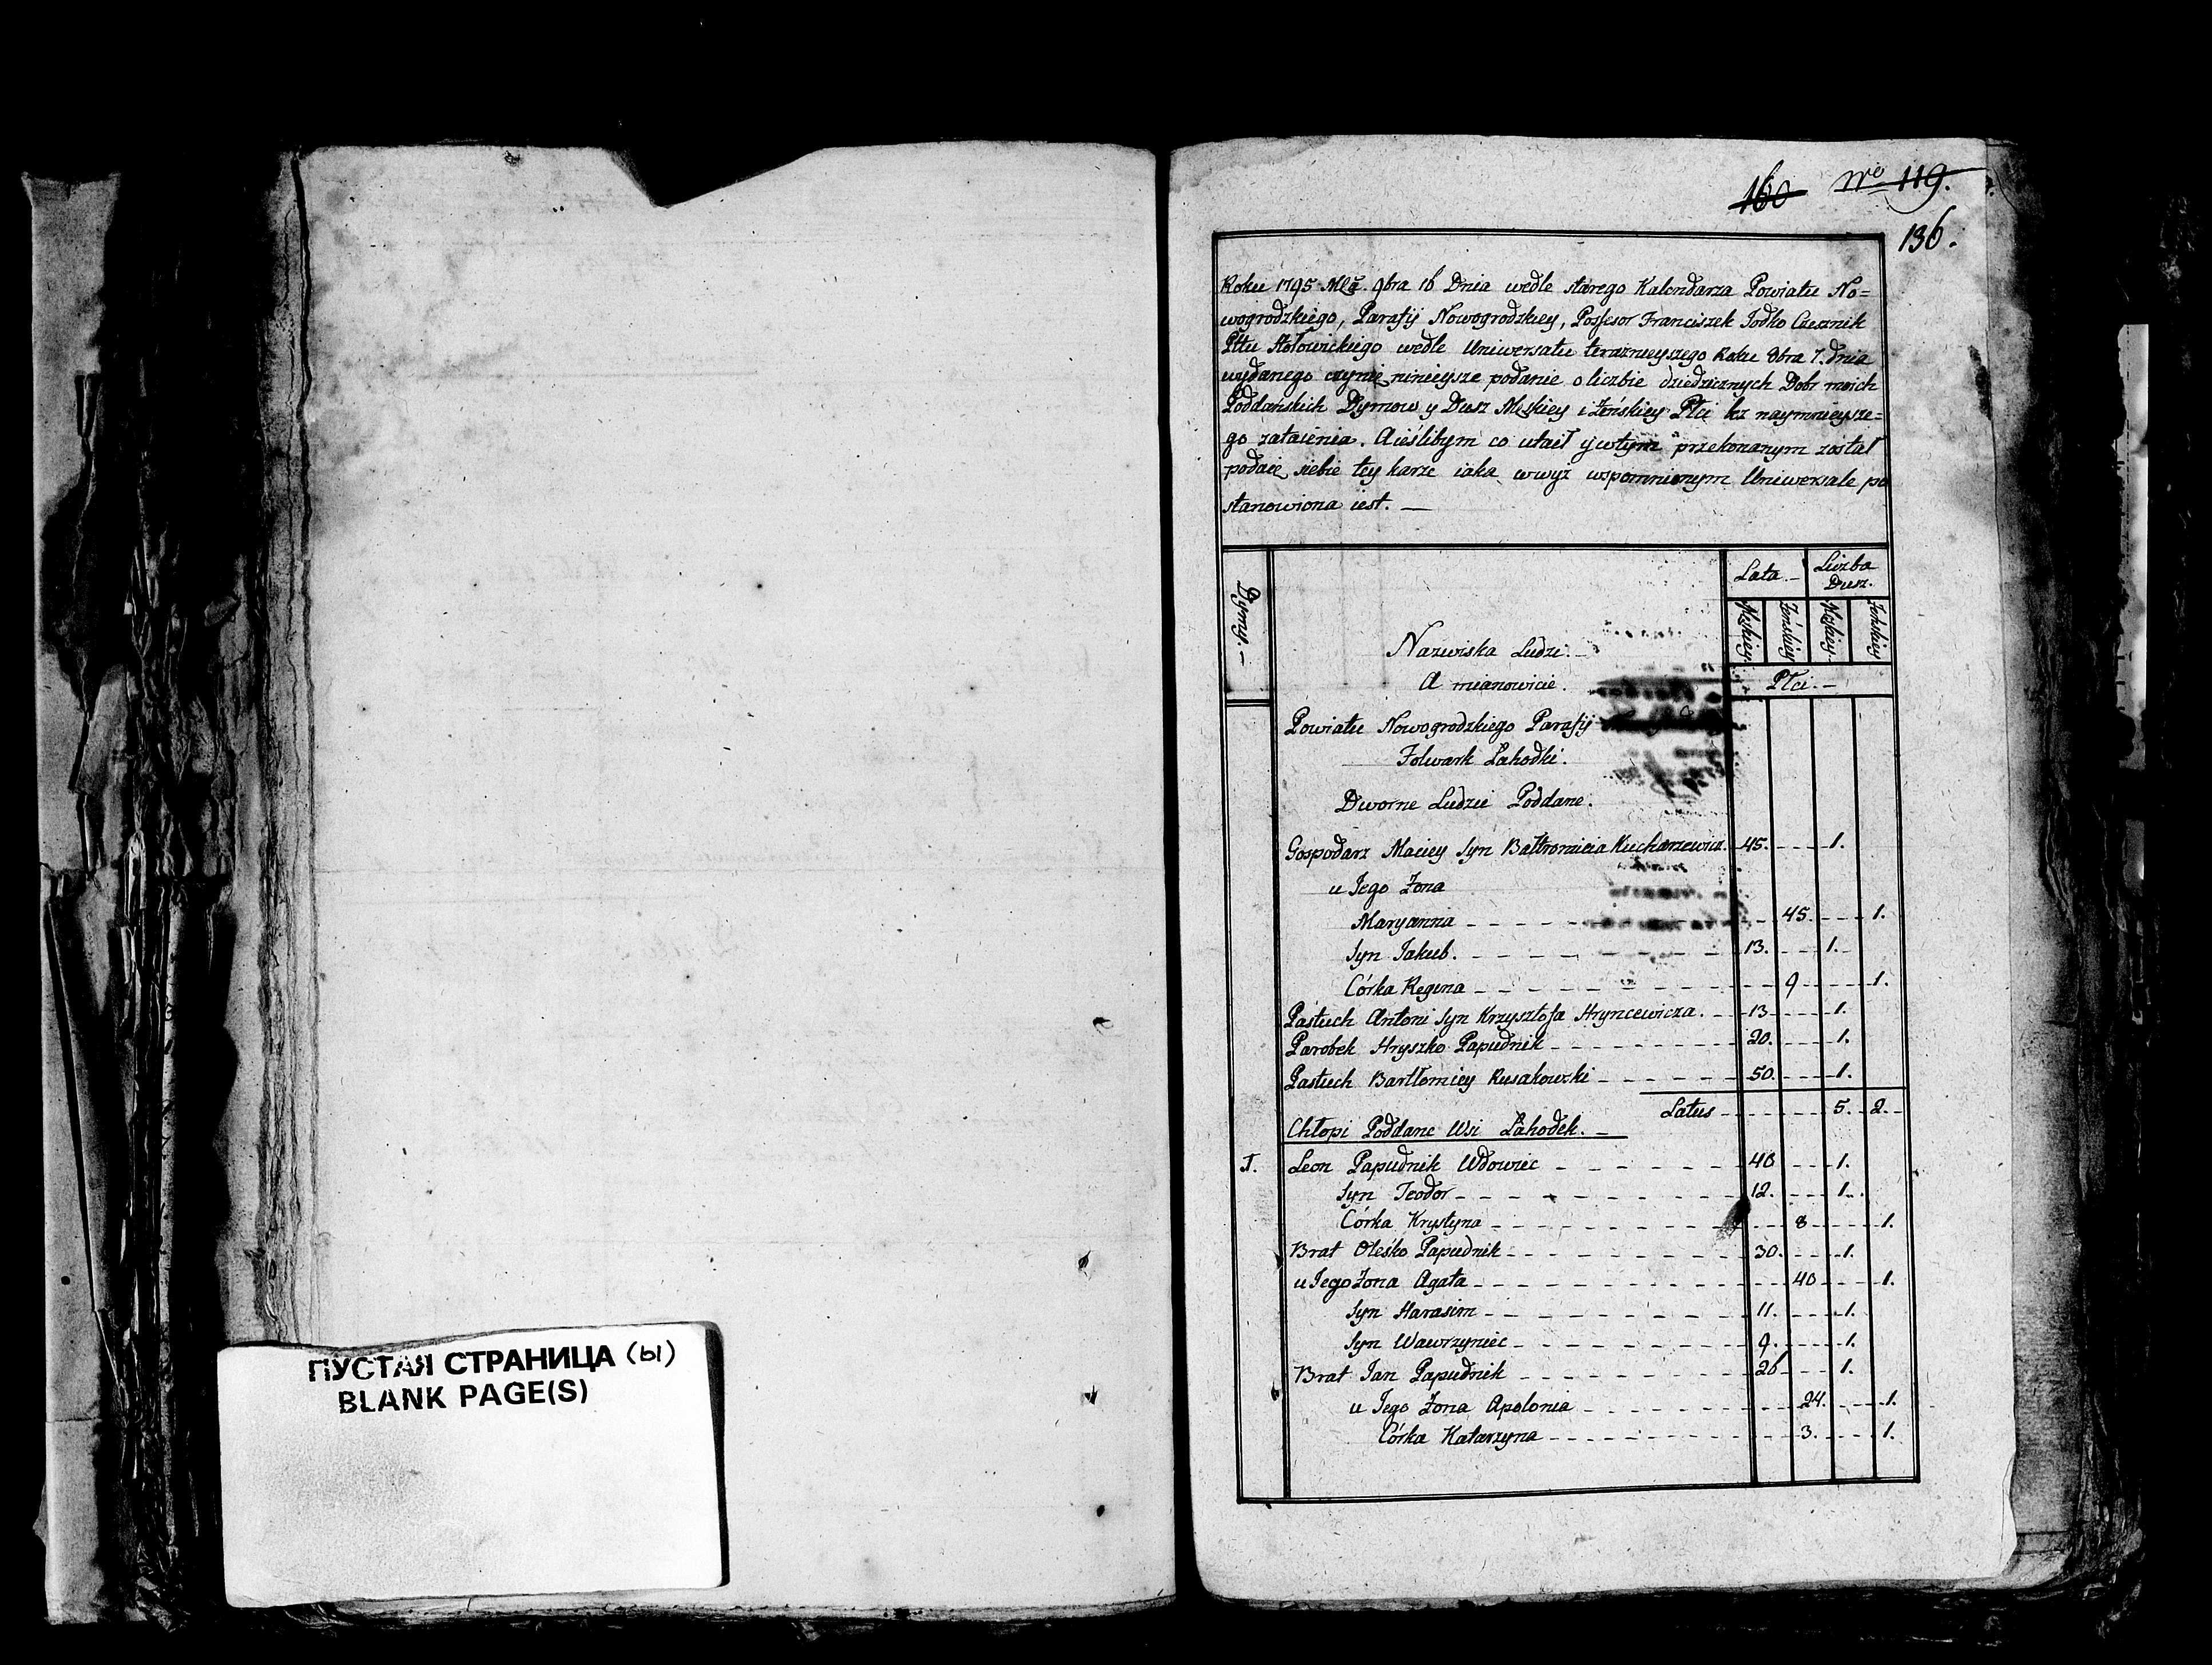 160 Nro 119.
136.
Roku 1795 Mca. 9bra 16 Dnia wedle starego Kalendarza Powiatu No=
wogrodzkiego, Parafij Nowogrodzkiey, Possesor Franciszek Jodko Czesznik
Pttu Słołowickiego wedle Uniwersału teraznieyszego Roku 8bra 7. dnia
wydanego czynię ninieysze podanie o liczbie dziedzicznych Dobr moich
Poddańskich Dymow y Dusz Męskiey i Żeńskiey Płci bez naymnieysze=
go zataienia. A ieślibym co utaił y wtym przekonanym został
podaię siebie tey karze iaka wwyż wspomnionym Uniwersale po
stanowiona iest. —
Dymy. —
Nazwiska Ludzi. —
A mianowicie.
Lata. — Liczba
Dusz.
Męskiey. Żeńskiey Męskiey Żeńskiey
Płci. —
Powiatu Nowogrodzkiego Parafij
Folwark Łahodki.
Dworne Ludzie Poddane.
Gospodarz Maciey Syn Bałtromieia Kucharzewicz. 45. 1.
u Jego Żona
Maryanna 45. 1.
Syn Jakub. 13. 1.
Córka Regina 9 1.
Pastuch Antoni Syn Krzysztofa Hryncewicza. 13 1.
Parobek Hryszko Papudnik 20. 1.
Pastuch Bartłomiey Rusakowski 50. 1.
Latus 5. 2.
Chłopi Poddane Wsi Łahodek. —
1. Leon Papudnik Wdowiec 40 1.
Syn Teodor 12. 1.
Córka Krystyna 8 1.
Brat Oleśko Papudnik 30. 1.
u Jego Żona Agata 40 1.
Syn Harasim 11. 1.
Syn Wawrzyniec 9. 1.
Brat Jan Papudnik 26 1.
u Jego Żona Apolonia 24. 1.
Córka Katarzyna 3. 1.
ПУСТАЯ СТРАНИЦА (Ы)
BLANK PAGE(S)